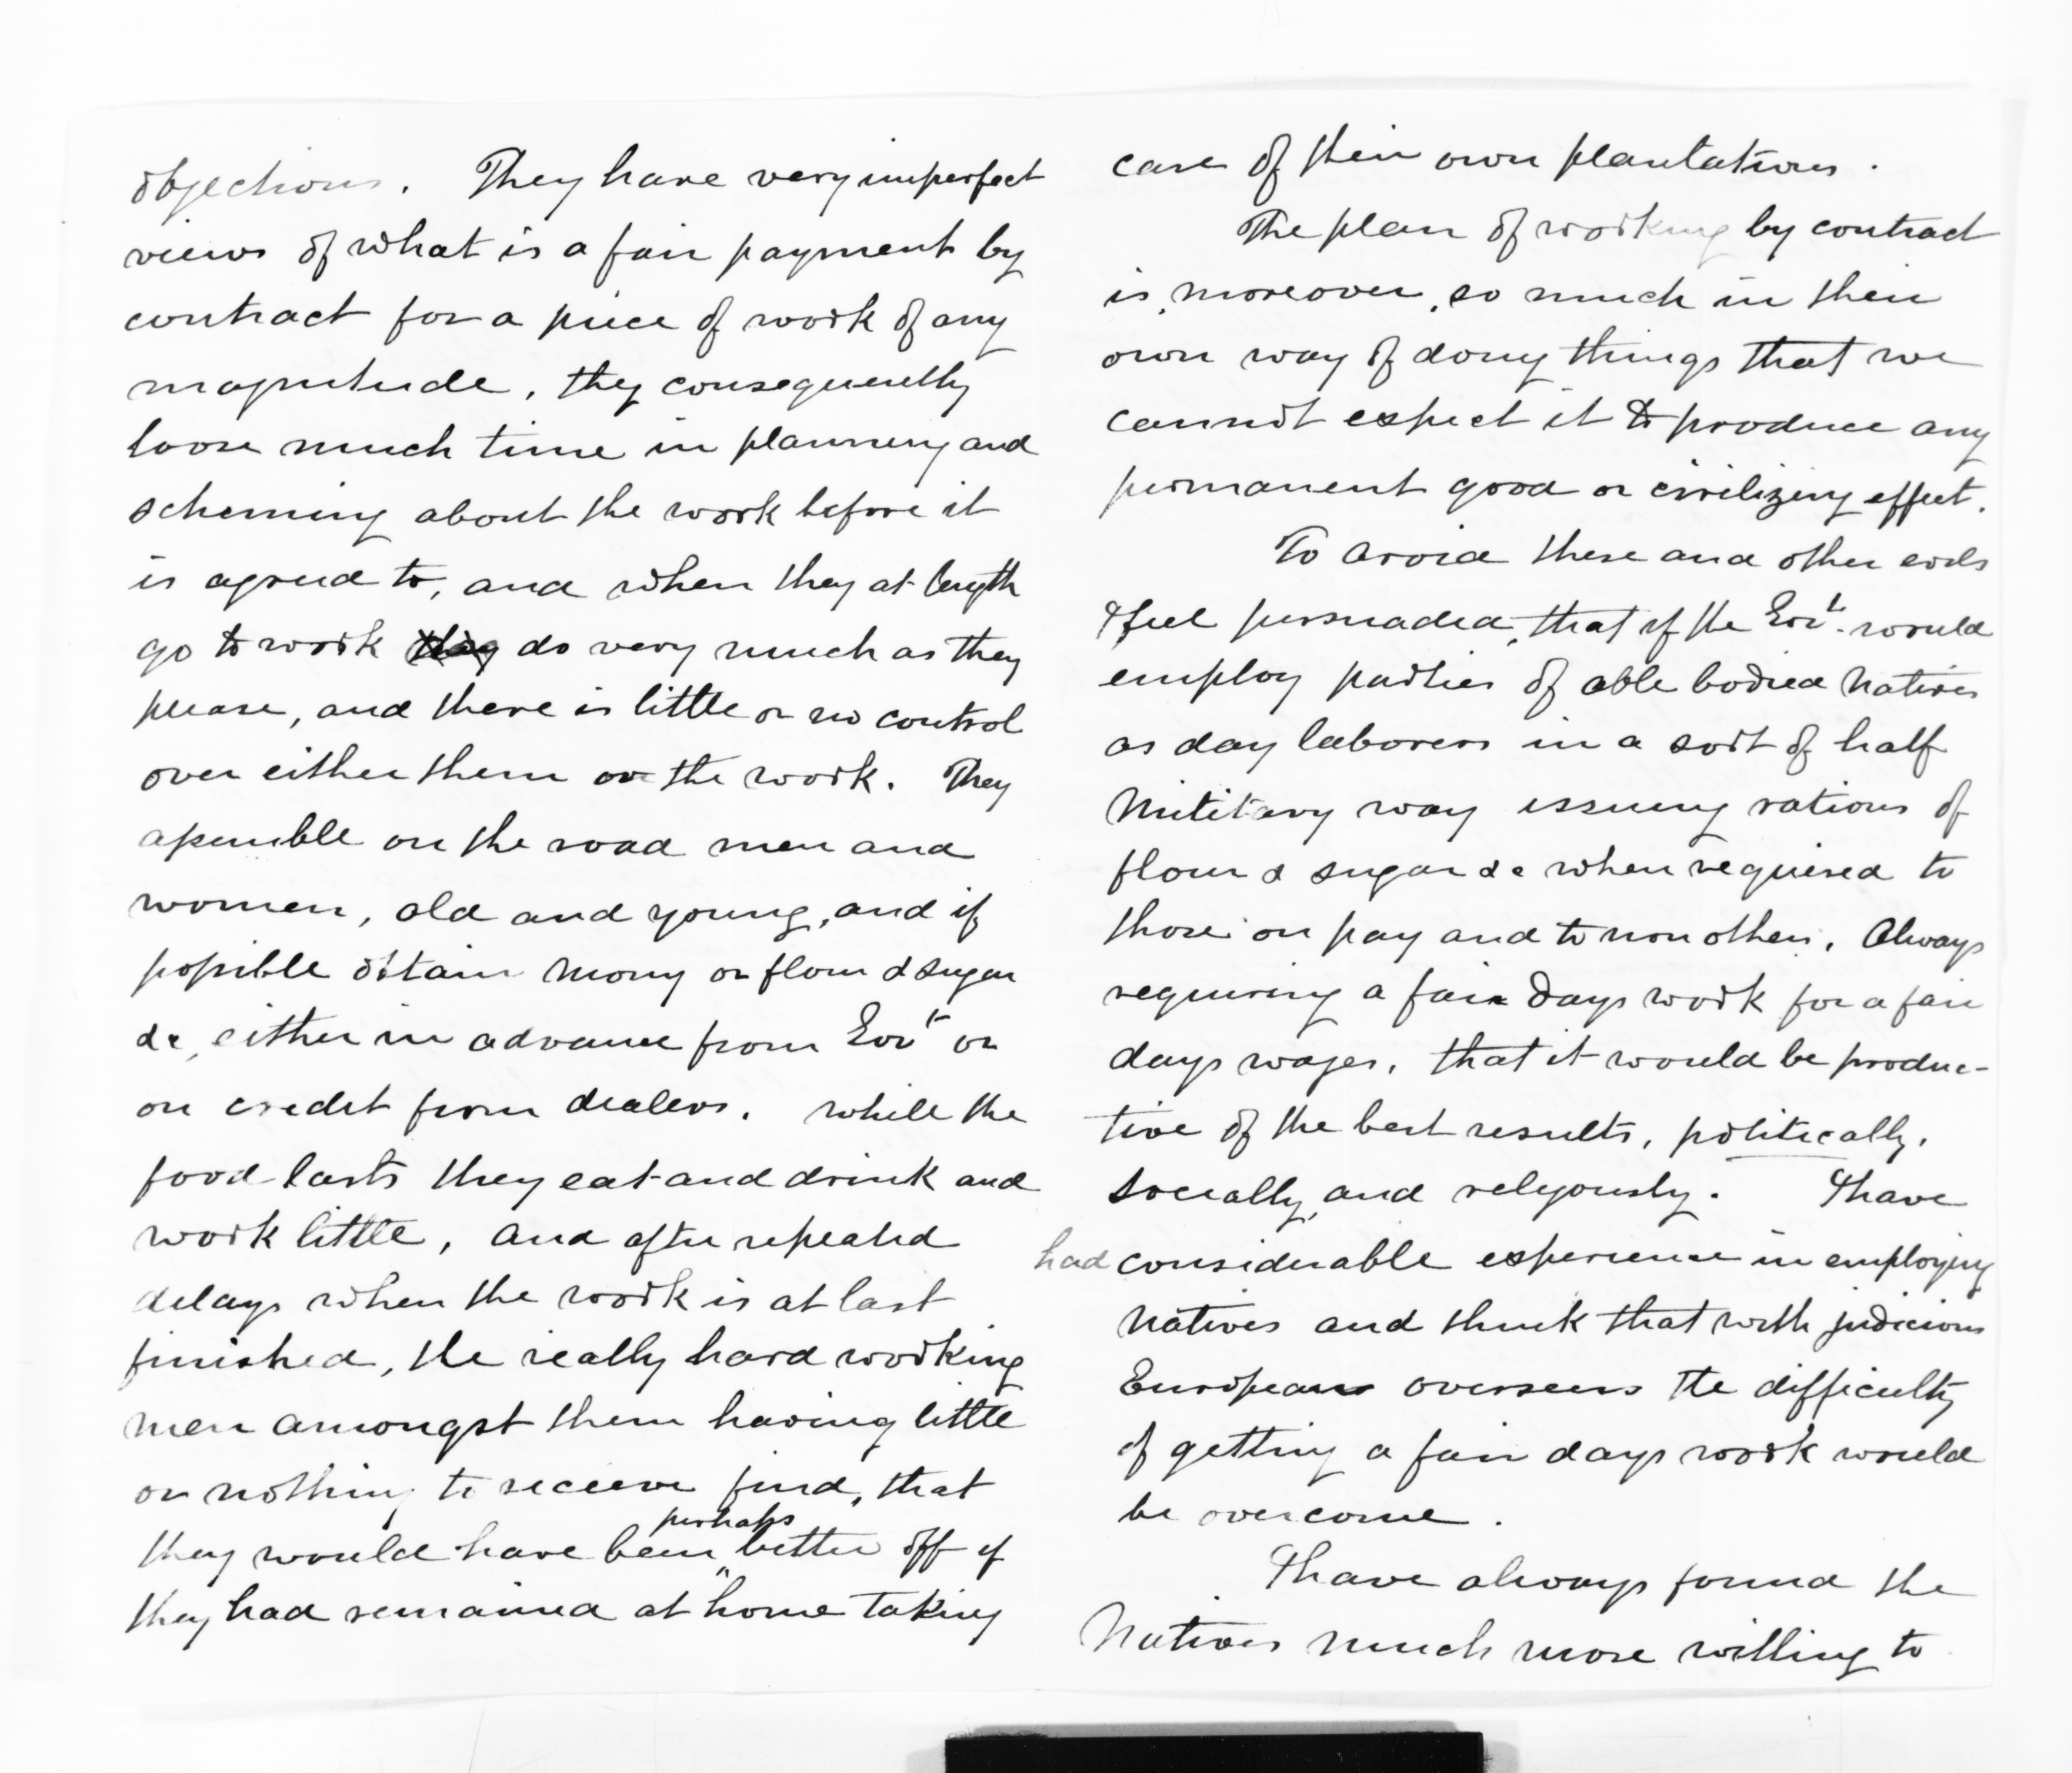 objections. They have very imperfect
views of what is a fair payment by
contract for a piece of work of any
magnitude, they consequently
loose much time in planning and
scheming about the work before it
is agreed to, and when they at length
go to work they do very much as they
please, and there is little or no control
over either them or the work. They
assemble on the road men and
women, old and young, and if
possible obtain mony or flour & sugar
&c, either in advance from Govt or
on credit from dealers. While the
food lasts they eat and drink and
work little, and after repeated
delays when the work is at last
finished, the really hard working
men amongst them having little
or nothing to receive find, that
they would have been perhaps better off if
they had remained at home taking
care of their own plantations.
The plan of working by contract
is, moreover, so much in their
own way of doing things that we
cannot expect it to produce any
permanent good or civilizing effect.
To avoid these and other evils
I feel persuaded, that if the Govt. would
employ parties of able bodied Natives
as day laborers in a sort of half
Military way issuing rations of
flour & sugar &c when required to
those on pay and to non others. Always
requiring a fair days work for a fair
days wages, that it would be produc-
tive of the best results, politically,
socially, and religously. I have
had considerable experience in employing
Natives and think that with judicious
European overseers the difficulty
of getting a fair days work would
be overcome.
I have always found the
Natives much more willing to